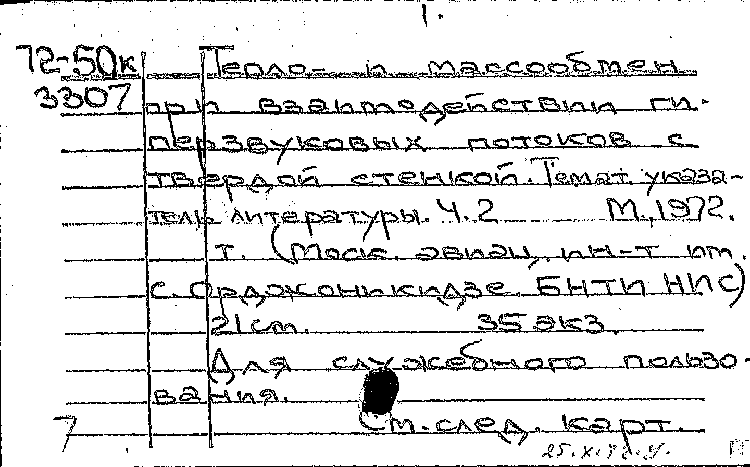 1.
72-50к Тепло- и массообмен
3307 при взаимодействии ги-
перзвуковых потоков с
твердой стенкой. Темат. указа-
тель литературы. Ч. 2 М., 1972.
т. (Моск. авиац. ин-т им.
С. Орджоникидзе. БНТИ НИС)
21 см. 35 экз.
Для служебного пользо-
вания.
7 См. след. карт.